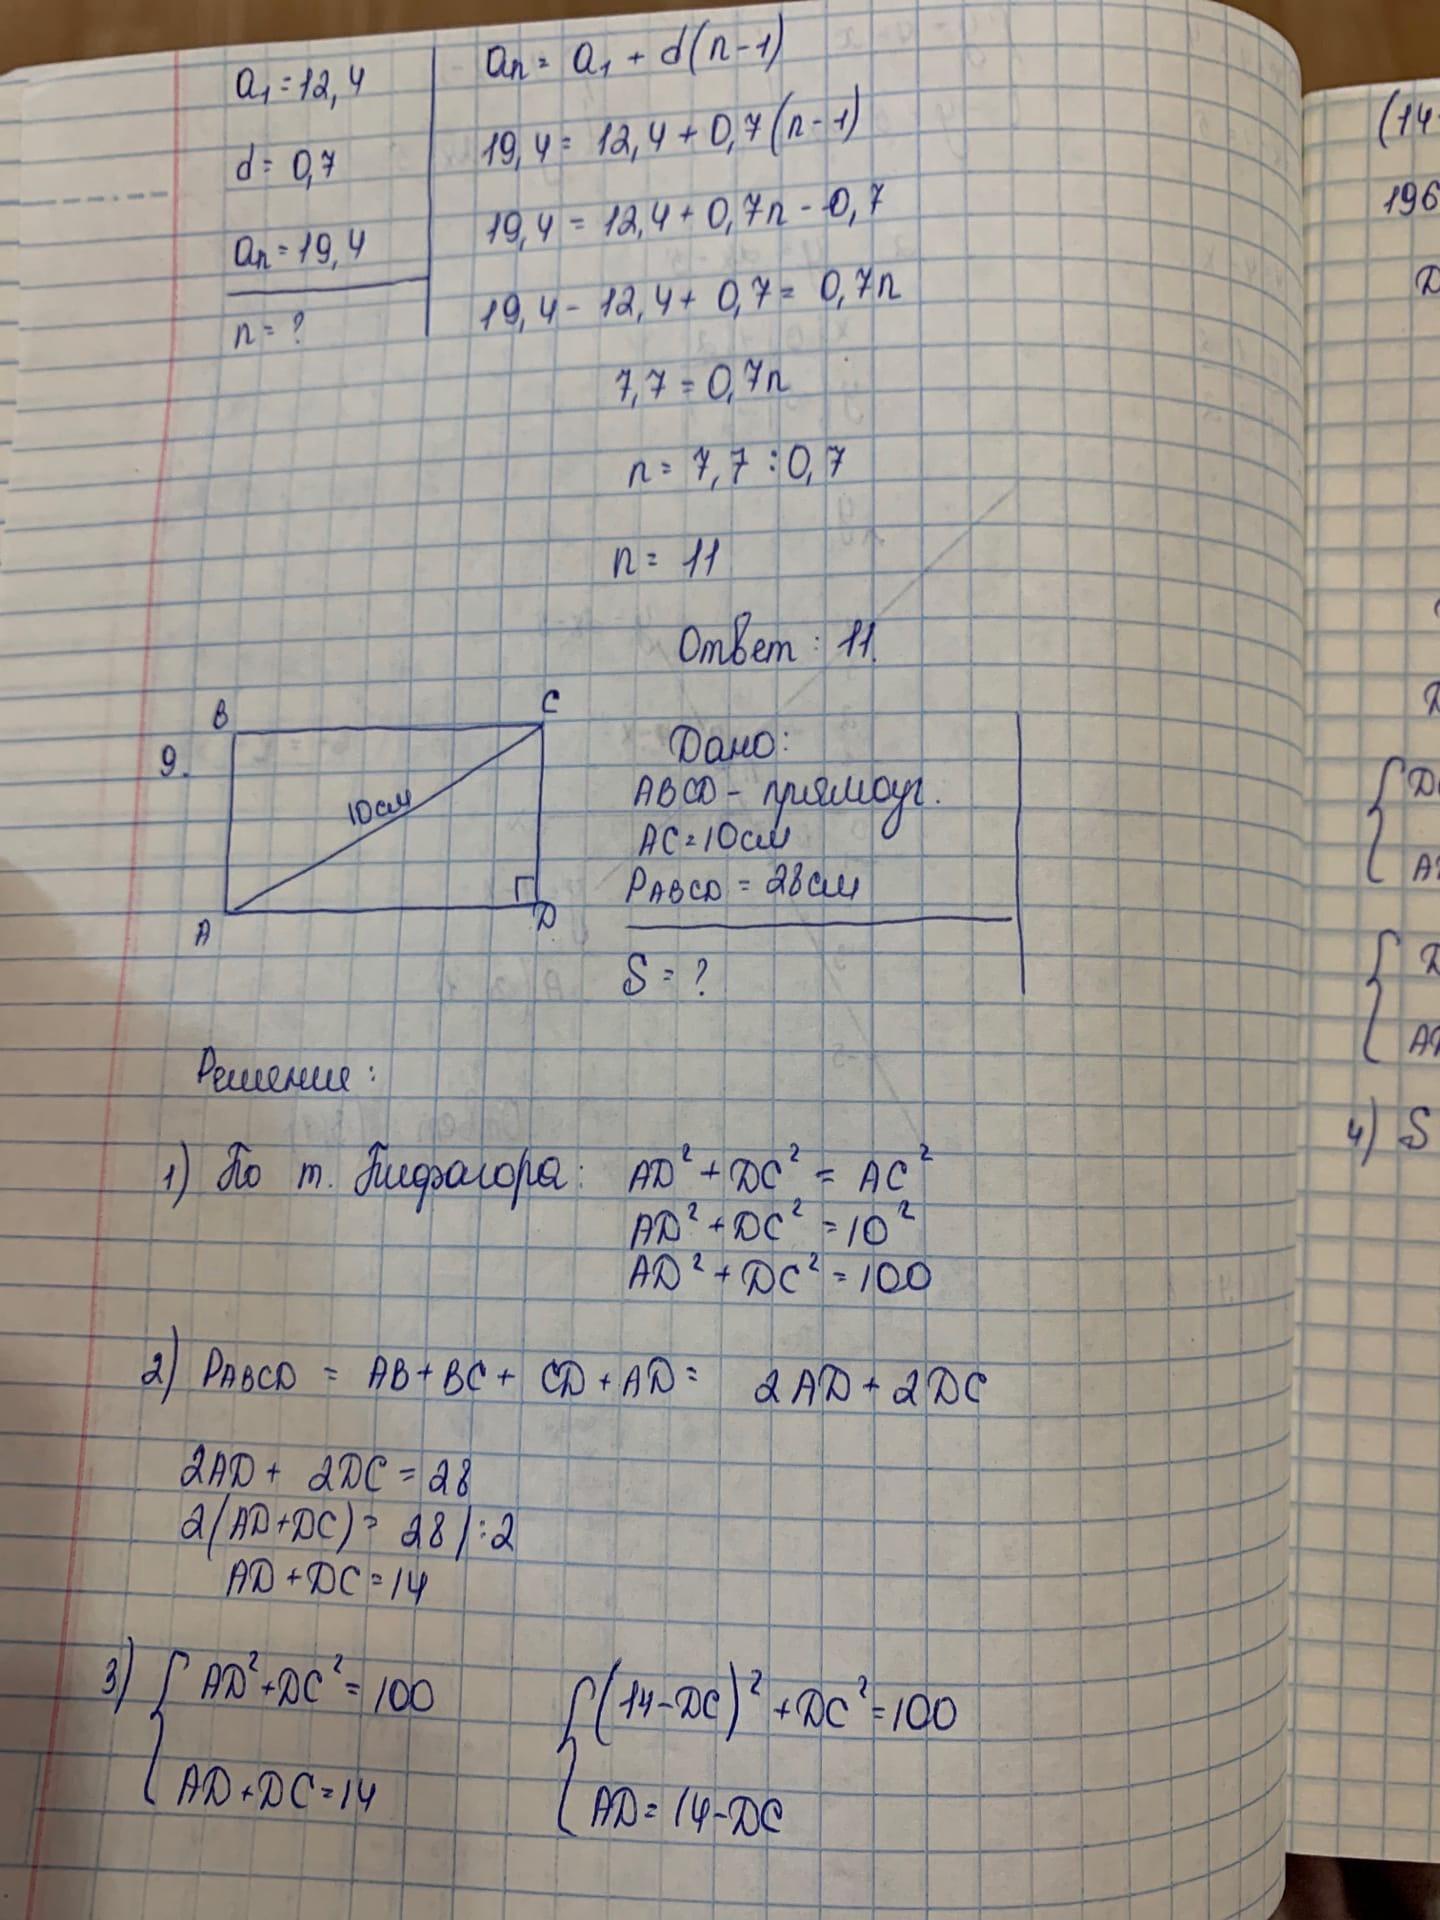 a₁ = 12,4
d = 0,7
aₙ = 19,4
n = ?
aₙ = a₁ + d(n-1)
19,4 = 12,4 + 0,7(n-1)
19,4 = 12,4 + 0,7n - 0,7
19,4 - 12,4 + 0,7 = 0,7n
7,7 = 0,7n
n = 7,7 : 0,7
n = 11
Ответ : 11.
9.
B
C
10см
A
D
Дано:
ABCD - прямоуг.
AC = 10см
PABCD = 28см
S = ?
Решение:
1) По т. Пифагора: AD² + DC² = AC²
AD² + DC² = 10²
AD² + DC² = 100
2) PABCD = AB + BC + CD + AD = 2AD + 2DC
2AD + 2DC = 28
2(AD+DC) = 28 |:2
AD + DC = 14
3) { AD² + DC² = 100
AD + DC = 14
{ (14-DC)² + DC² = 100
AD = 14-DC
(14
196
4) S